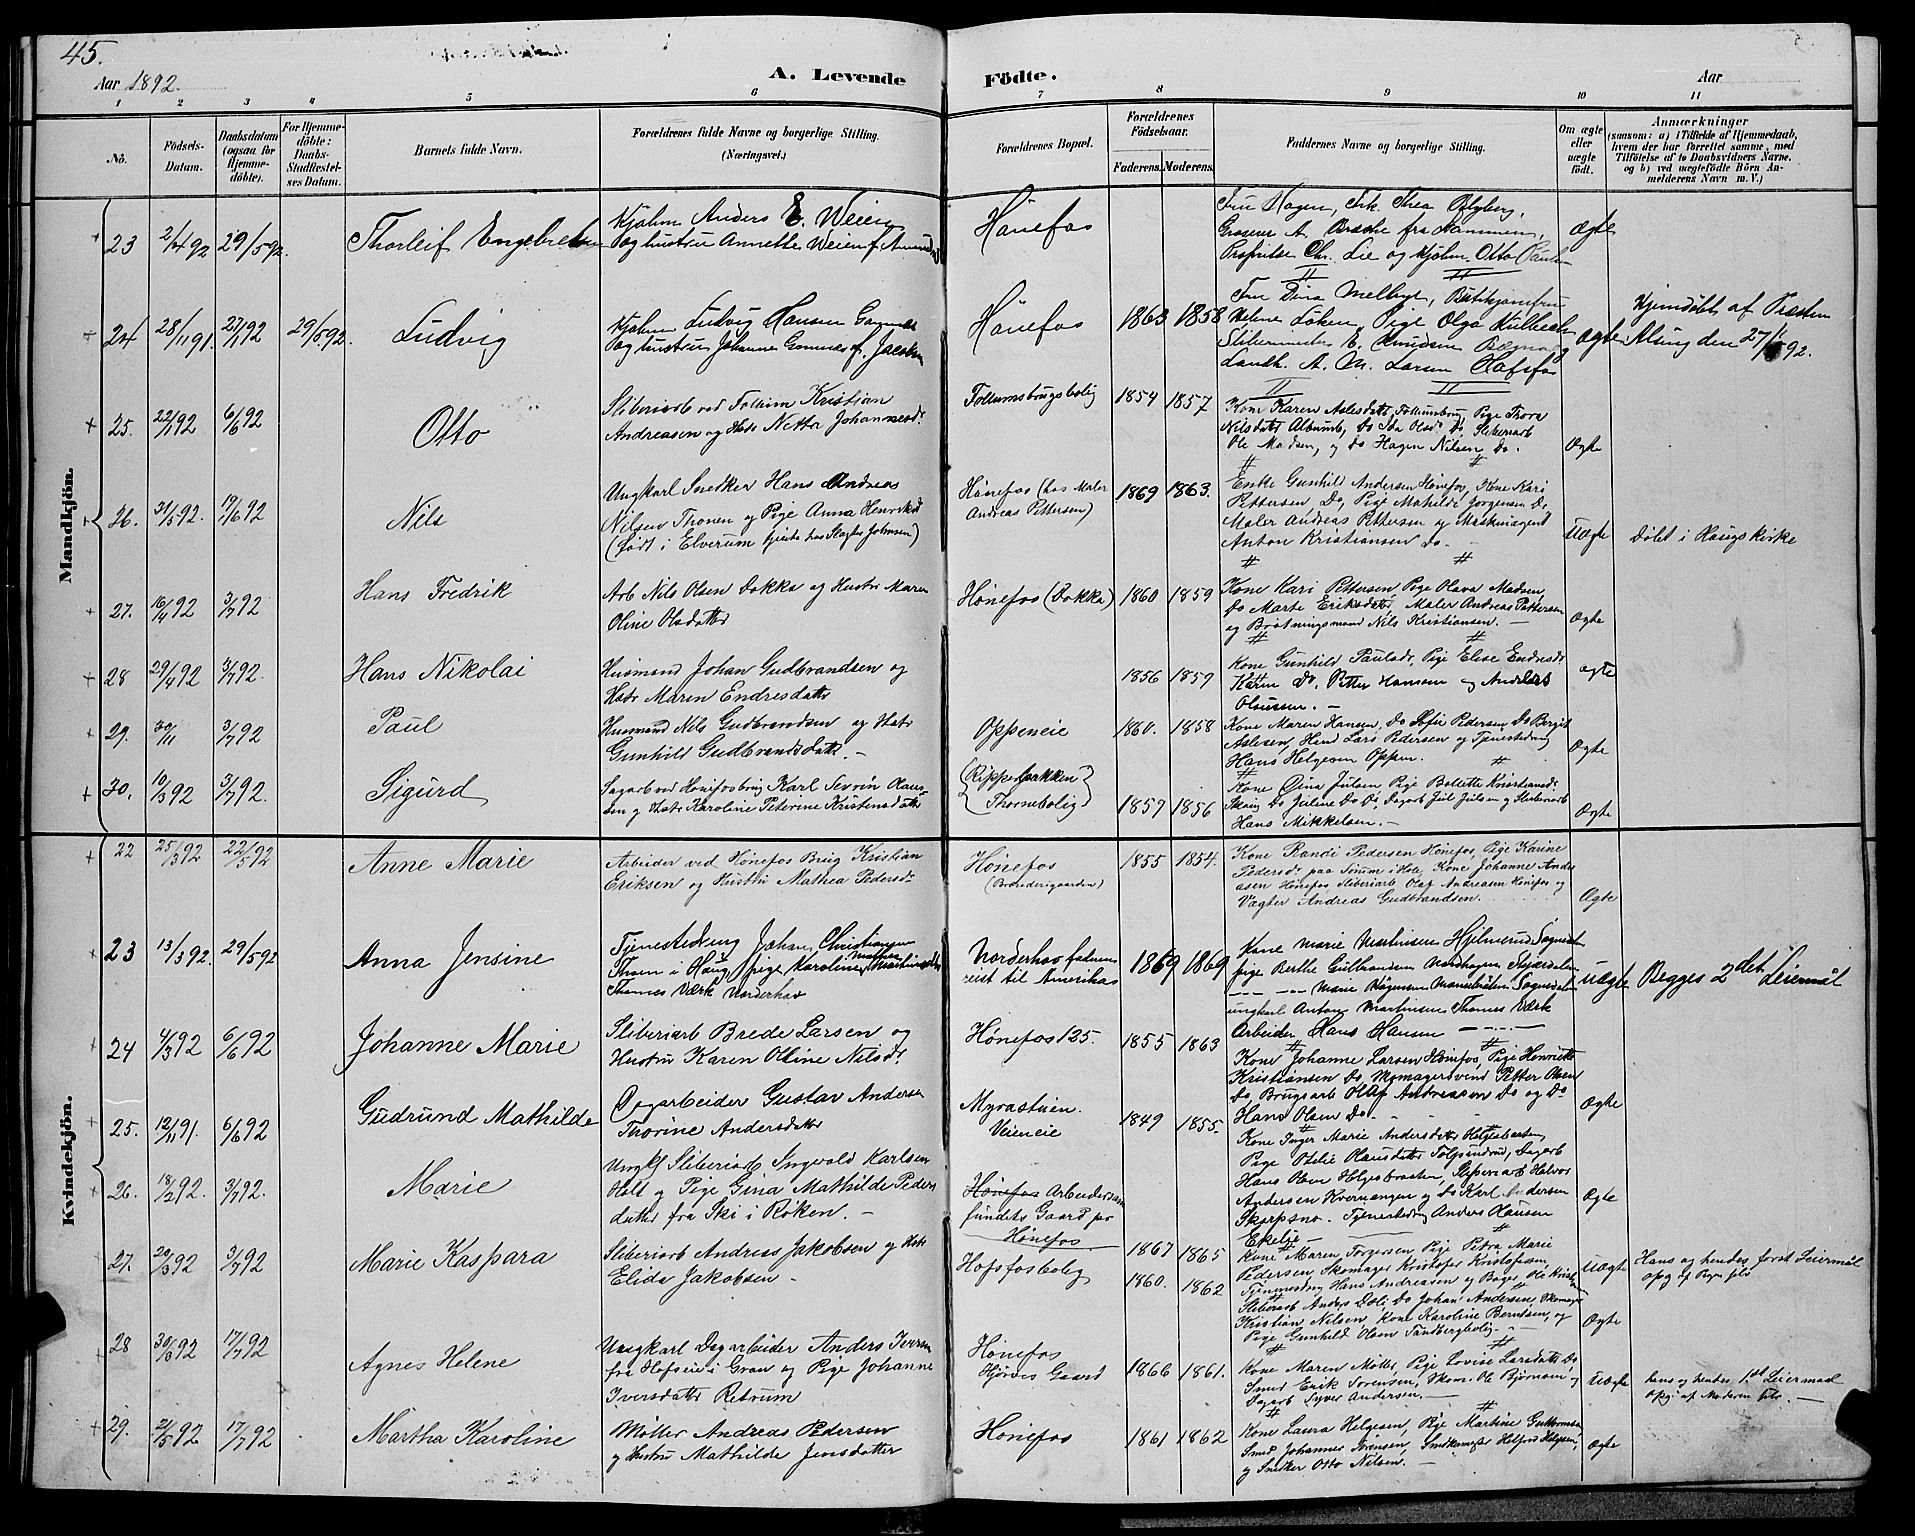 45.
Aar 1892.
A. Levende Födte.
Aar
1 2 3 4 5 6 7 8 9 10 11
No.
Födsels-Datum.
Daabsdatum (ogsaa for Hjemme-döbte).
For Hjemme-döbte: Daabs-Stadfæstel-ses Datum.
Barnets fulde Navn.
Forældrenes fulde Navne og borgerlige Stilling. (Næringsvei.)
Forældrenes Bopæl.
Forældrenes Födselsaar.
Faderens. Moderens.
Faddernes Navne og borgerlige Stilling.
Om ægte eller uægte födt.
Anmærkninger
(saasom: a) i Tilfælde af Hjemmedaab,
hvem der har forrettet samme, med
Tilföielse af to Daabsvidners Navne.
og b) ved uægtefödte Börn An-
melderens Navn m. V.)
Mandkjön.
23 2/4 92 29/5 92. Thorleif Engebretsen
Kjøbm Anders E. Weien
og hustru Annette Weien f. Amundsen
Hönefos
Fru Hagen, Frk. Thea Blyberg,
Grosserer A. Bræche fra Drammen,
Chr. Lie og Kjøbm. Otto Paulsen
Ægte
24 28/11 91. 27/1 92 29/5 92. Ludvig
Kjøbm Ludvig Hansen Gomnes
og hustru Johanne Gomnes f. Jacobsen
Hönefos 1863 1858
Fru Dina Melbye,
Helene Löken, Pige Olga
Slibermester C. Knudsen
Landh. A. M. Larsen Hofsfos
Ægte
Hjemdöbt af Præsten
Alsing den 27/1 92.
25. 22/1 92 6/6 92 Otto
Sliberiarb ved Follum Kristian
Andreasen og Hstr Netta Johannesdr.
Follumsbrugsbolig 1854 1857
Kone Karen Aslesdatter, Follumbrug, Pige Thora
Nilsdatter Do, Do Ida Olsdr Do, Sliberiarb
Ole Madsen, og do Hagen Nilsen do.
Ægte
26. 31/5 92. 19/6 92 Nils
Ungkarl Snedker Hans Andreas
Nilsen Thonen og Pige Anna Henriksdr
(født i Elverum tjente hos Slagter Johnsen)
Hönefos (hos Maler
Andreas Pettersen) 1869 1863.
Enke Gunhild Andersen Hönefos, Kone Kari
Pettersen Do, Pige Mathilde Jörgensen Do
Maler Andreas Pettersen og Maskinagent
Anton Kristiansen do.
Uægte
Döbt i Haugs Kirke
27. 16/4 92 3/7 92 Hans Fredrik
Arb Nils Olsen Dokka og Hustr Maren
Oline Olsdatter
Hönefos (Dokka) 1860 1859
Kone Kari Pettersen, Pige Olava Madsen,
Do Marte Eriksdatter, Maler Andreas Pettersen
og Brötningsmand Nils Kristiansen. —
Ægte
28 29/4 92 3/7 92. Hans Nikolai
Husmand Johan Gudbrandsen og
Hstr Maren Endresdatter
1856 1859
Kone Gunhild Paulsdr, Pige Elise Endresdr
Karen Do. Petter Hansen og Andreas
Olaussen. —
Ægte
29. 30/11 3/7 92 Paul
Husmand Nils Gudbrandsen og Hstr
Gunhild Gudbrandsdatter. —
Oppeneie 1860. 1858
Kone Maren Hansen, Do Sofie Pedersen Do Bergit
Aslesen, Hmd Lars Pedersen og Tjenestedreng
Hans Helgesen Oppen.
Ægte
30. 10/3 92 3/7 92. Sigurd
Sagarb ved Hönefosbrug Karl Severin Claus-
sen og Hstr Karoline Petrine Kristensdatter
(Ripperbakken
Thornebolig) 1857 1856
Kone Dina Julsen Pige Bollette Kristensdr
Skaug Do Juline Do Do, Dagarb Juel Julsen og Sliberiarb
Hans Mikkelsen. —
Ægte
Kvindekjön.
22 25/3 92 22/5 92 Anne Marie
Arbeider ved Hönefos Brug Kristian
Eriksen og Hustru Mathea Pedersdr.
Hönefos
(Brænderigaarden) 1855 1854.
Kone Randi Pedersen Hönefos, Pige Karine
Pedersdr paa Sörum i Hole, Kone Johanne Andre
asen Hönefos, Sliberiarb Olaf Andreasen Hönefos og
Vægter Andreas Gudbrandsen.
Ægte
23 13/3 92. 29/5 92 Anna Jensine
Tjenestedreng Johan Christiansen
Thoen i Haug, pige Karoline Mathea Martinsdatter
Thames Værk Norderhov
Norderhov faderen
reist til Amerika 1869 1869
Kone Marie Martinsen Hjelmerud Sognedal
pige Berthe Gulbrandsen
ungkarl Anton Martinsen Thames Værk
Arbeider Hans Hansen — — —
uægte
Begges 2det Leiermål
24 4/3 92 6/6 92 Johanne Marie
Sliberiarb Brede Larsen og
Hustru Karen Olline Nilsdr.
Hönefos 125. 1855 1863
Kone Johanne Larsen Hönefos, Pige Henriette
Kristiansen Do, Skomagersvend Petter Olsen
Do, Brugsarb Olaf Andreasen Do og Do
Hans Olsen Do. —
Ægte
25. 12/11 91. 6/6 92 Gudrund Mathilde
Dagarbeider Gustav Andersen
Thorine Andersdatter
Myrastuen.
Veieneie 1849 1855.
Kone Inger Marie Andersdatter Helgesbraaten,
Pige Otelie Hansdatter Follgsundrud, Dagarb
Hans Olsen Helgesbraaten, Sliperiarb Halvor
Andersen Kvernangen og Do Karl Andersen
Skarpsno. Tjenestedreng Anders Hansen
Ekelie —
Ægte
26. 18/2 92. 3/7 92. Marie
Ungkl Sliberiarb Ingvald Karlsen
Holt og Pige Gina Mathilde Peders
datter fra Ski i Röken. —
Hönefos Arbeidersam
fundets Gaard pr
Hönefos 1867 1865
Kone Maren Torgersen, Pige Petra Marie
Pedersen Skomager Kristofer Kristofersen,
Tjenestedreng Hans Andreasen og Bager Ole Kristian
Uægte
Hans og hendes först Leiermål
opg af Pigen selv
27. 20/3 92 3/7 92 Marie Kaspara
Sliberiarb Andreas Jakobsen og Hstr
Elida Jakobsen —
Hofsfosbolig 1860. 1862
Sliberarb Anders Dole, Do Johan Andersen, Skomager
Kristian Nilsen, Kone Karoline Berntsen, og
Pige Gunhild Olsen Tandbergbolig —
Ægte
28 30/3 92 17/7 92 Agnes Helene
Ungkarl Dagarbeider Anders Iversen
fra Hofseie i Gran og Pige Johanne
Iversdatter Retrum
Hönefos
Hjörves Gaard 1866 1861.
Kone Maren Möller, Pige Lovise Larsdatter Do,
Smed Erik Sörensen, Skom. Ole Björnsen og
Dagarb Syver Andersen. —
Uægte
hans og hendes 1ste Leiermaal
opg af Moderen selv. —
29. 21/5 92 17/7 92 Martha Karoline
Möller Andreas Pedersen
og Hustru Mathilde Jensdatter
Hönefos 1861 1862
Kone Laura Helgesen, Pige Martine Guttormsen
Smed Johannes Sörensen, Helfred Helgesen,
og Snedker Otto Nilsen. —
Ægte